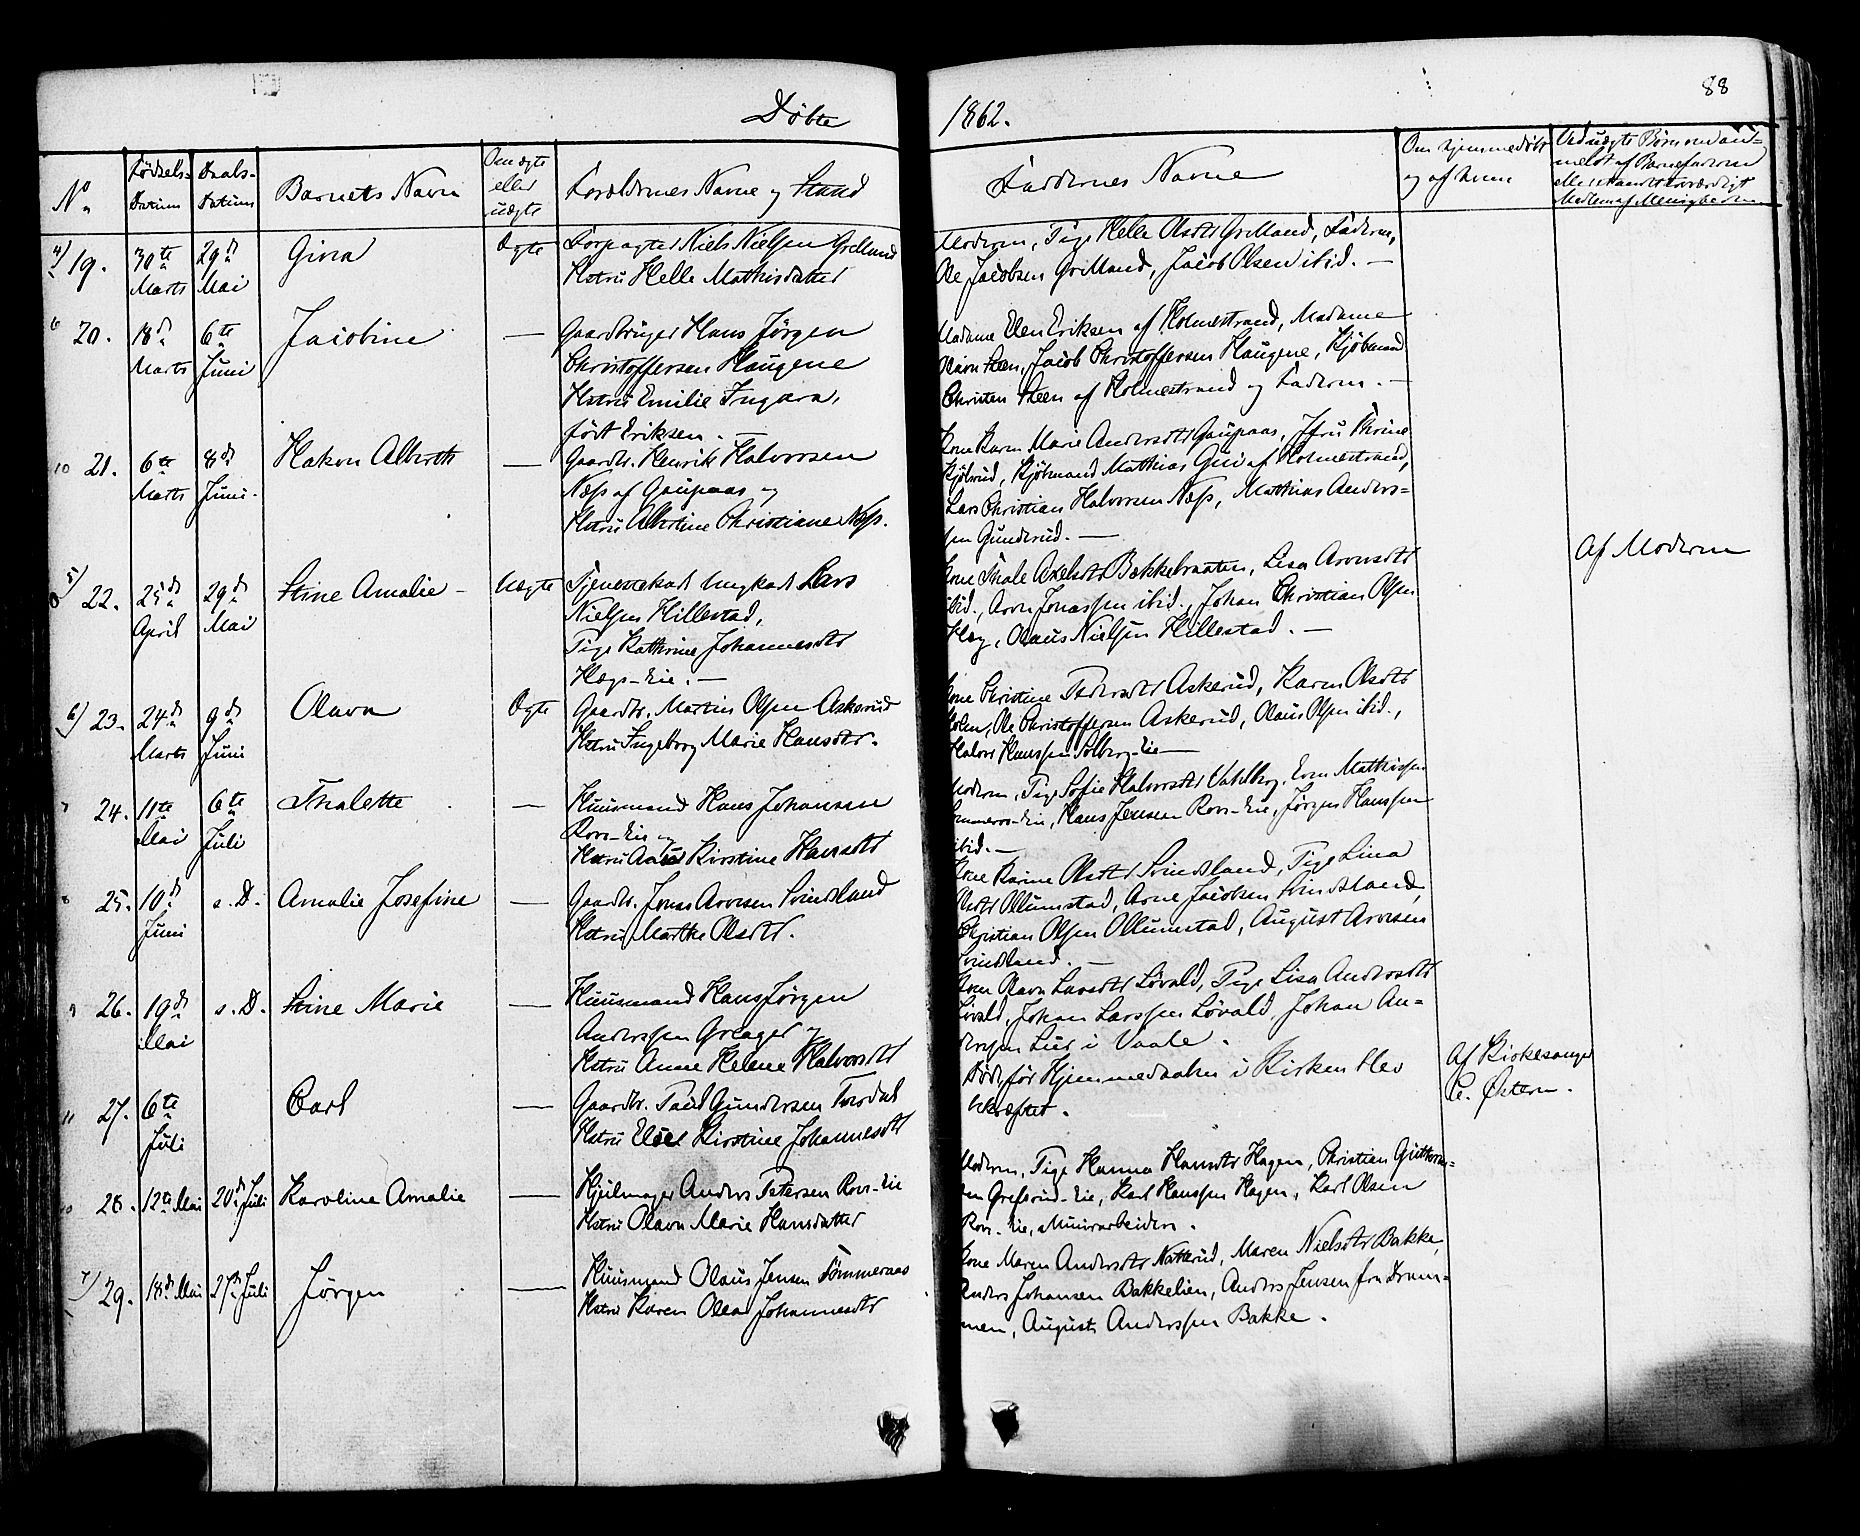 Døbte
1862.
88
No
Fødsels-Datum
Daabs-Datum
Barnets Navn
Om ægte eller uægte
Forældrenes Navne og Stand
Faddernes Navne
Om hjemmedøbt og af hvem
Ved uægte Børn om anmeldt af Barnefaderen
19. 30te Marts 29de Mai Gina Ægte Forpagter Niels Nielsen Grelland
Hstru Helle Mathisdatter
Moderen, Pige Helle Olsdtr Grelland, Faderen,
Ole Jacobsen Grelland, Jacob Olsen ibid. —
20. 18de Marts 6te Juni Jacobine — Gaardbruger Hans Jørgen
Christoffersen Haugene
Hstru Emilie Ingara,
født Eriksen. —
Madame Elen Eriksen af Holmestrand, Madame
Steen, Jacob Christoffersen Haugene, Kjøbmand
Christen Steen af Holmestrand og Faderen. —
21. 6te Marts 8de Juni. Hakon Alberth — Gaardbr. Henrik Halvorsen
Næss af Gaupaas og
Hstru Albertine Christiane Næss.
Kone Karen Marie Andersdtr Gaupaas, Jfru Thrine
Kjøbmand Mathias af Holmestrand,
Lars Christian Halvorsen Næss, Mathias Anders=
sen Gunderud. —
22. 25de April 29de Mai Stine Amalie — Uægte Tjenestekarl Ungkarl Lars
Nielsen Hillestad,
Pige Kathrine Johannesdtr
Hægs-Eie. —
Kone Thale Axelsdtr Bækkebraaten, Lisa Arvesdtr
ibid., Arve Jonassen ibid., Johan Christian Olsen
Hæg, Olaus Nielsen Hillestad. —
Af Moderen
23. 24de Marts 9de Juni Olava Ægte Gaardbr. Martin Olsen Askerud
Hstru Ingeborg Marie Hansdtr.
Kone Christine Pedersdtr Askerud, Karen Olsdtr
Holm, Ole Christoffersen Askerud, Olaus Olsen ibid.,
Halvor Hanssen Solberg-Eie —
24. 11te Mai 6te Juli Thalette — Huusmand Hans Johansen
Rovs-Eie og
Hstru Anne Kirstine Hansdtr
Moderen, Pige Sofie Halvorsdtr Vahlberg, Even Mathissen
Hans Jensen Rovs-Eie, Jørgen Hanssen
ibid. —
25. 10de Juni s.D. Amalie Josefine — Gaardbr. Jonas Arvesen Svindsland
Hstru Marthe Olsdtr.
Kone Karine Olsdtr Svindsland, Pige Lina
Olsdtr Ollumstad, Arne Jacobsen Svindsland,
Christian Olsen Ollumstad, August Arvesen
Svindsland. —
26. 19de Mai s.D. Stine Marie — Huusmand Hans Jørgen
Anderssen Greager og
Hstru Anne Helene Halvorsdtr
Kone Olava Larsdtr Løvald, Pige Lisa Andersdtr
Løvald, Johan Larssen Løvald, Johan An=
derssen Lie i Vaale.
27. 6te Juli Carl — Gaardbr. Paul Gundersen Torsdal
Hstru Elise Kirstine Johannesdtr
Død, før Hjemmedaaben i Kirken blev
bekræftet.
Af Kirkesanger
C. Østern.
28. 12te Mai 20de Juli Karoline Amalie — Hjulmager Anders Petersen Rovs-Eie
Hstru Olava Marie Hansdatter
Moderen, Pige Hanna Hansdtr Hagen, Christian Guttorm=
sen Grefsrud-Eie, Karl Hanssen Hagen, Karl Olsen
Rovs-Eie, Muurarbeidere.
29. 18de Mai 27de Juli Jørgen — Huusmand Olaus Jensen Tømmeraas
Hstru Karen Olea Johannesdtr
Kone Maren Andersdtr Natterud, Maren Nielsdtr Bakke,
Anders Johansen Bakkelien, Anders Jensen fra Dram=
men, August Anderssen Bakke.